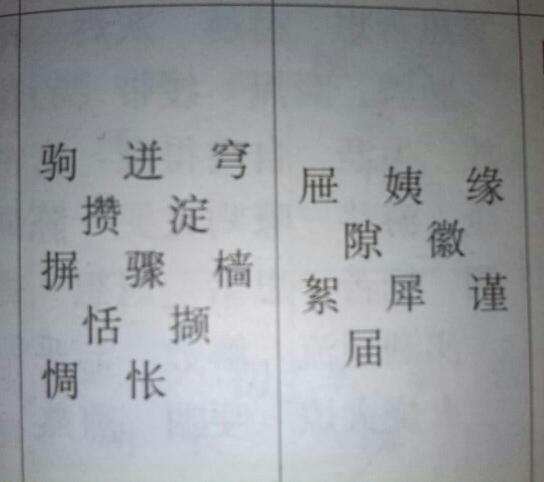 驹 迸 穹
攒 淀
摒 骤 樯
恬 撷
惆 怅
屉 姨 缘
隙 徽
絮 犀 谨
届